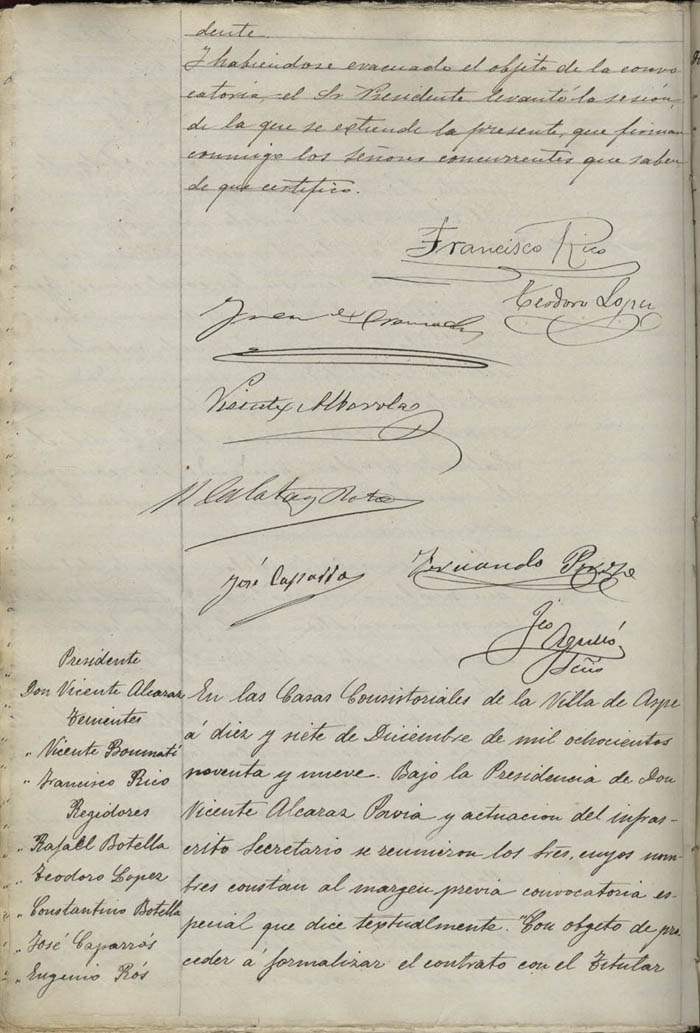 dente.
Y habiéndose evacuado el objeto de la convo
catoria, el Sr Presidente levantó la sesión,
de la que se extiende la presente, que firman
conmigo los señores concurrentes que saben
de que certifico.
Francisco Rico
Teodoro Lopez
Vicente Alberola
José Caparrós
Fernando Perez
Srio
Presidente
Don Vicente Alcaraz
Tenientes
" Vicente Boumatí
" Francisco Rico
Regidores
" Rafael Botella
" Teodoro Lopez
" Constantino Botella
" José Caparrós
" Eugenio Rós
En las Casas Consistoriales de la Villa de Aspe
á diez y siete de Diciembre de mil ochocientos
noventa y nueve. Bajo la Presidencia de Don
Vicente Alcaraz Pavia y actuacion del infras-
crito Secretario se reunieron los Sres. cuyos nom
bres constan al margen previa convocatoria es-
pecial que dice textualmente. "Con objeto de pro
ceder á formalizar el contrato con el Titular